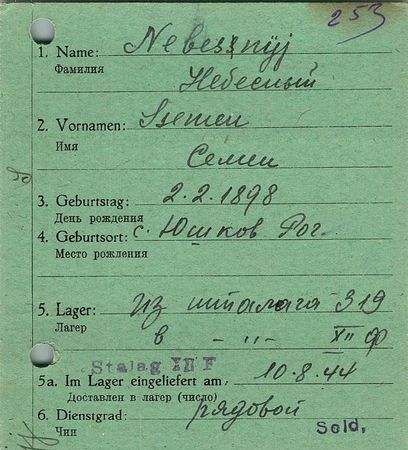 253
1. Name: Nebessnyj
Фамилия Небесный
2. Vornamen: Ssemen
Имя
Семен
3. Geburtstag: 2.2.1898
День рождения
4. Geburtsort: с. Юшков Рог.
Место рождения
5. Lager: Из шталага 319
Лагерь в -"- XII Ф
Stalag XII F
5a. Im Lager eingeliefert am: 10.8.44
Доставлен в лагерь (число)
6. Dienstgrad: рядовой
Чин Sold.